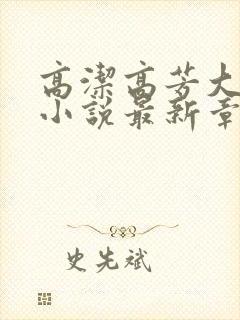 高潔高芳大
小說最新章
史先斌